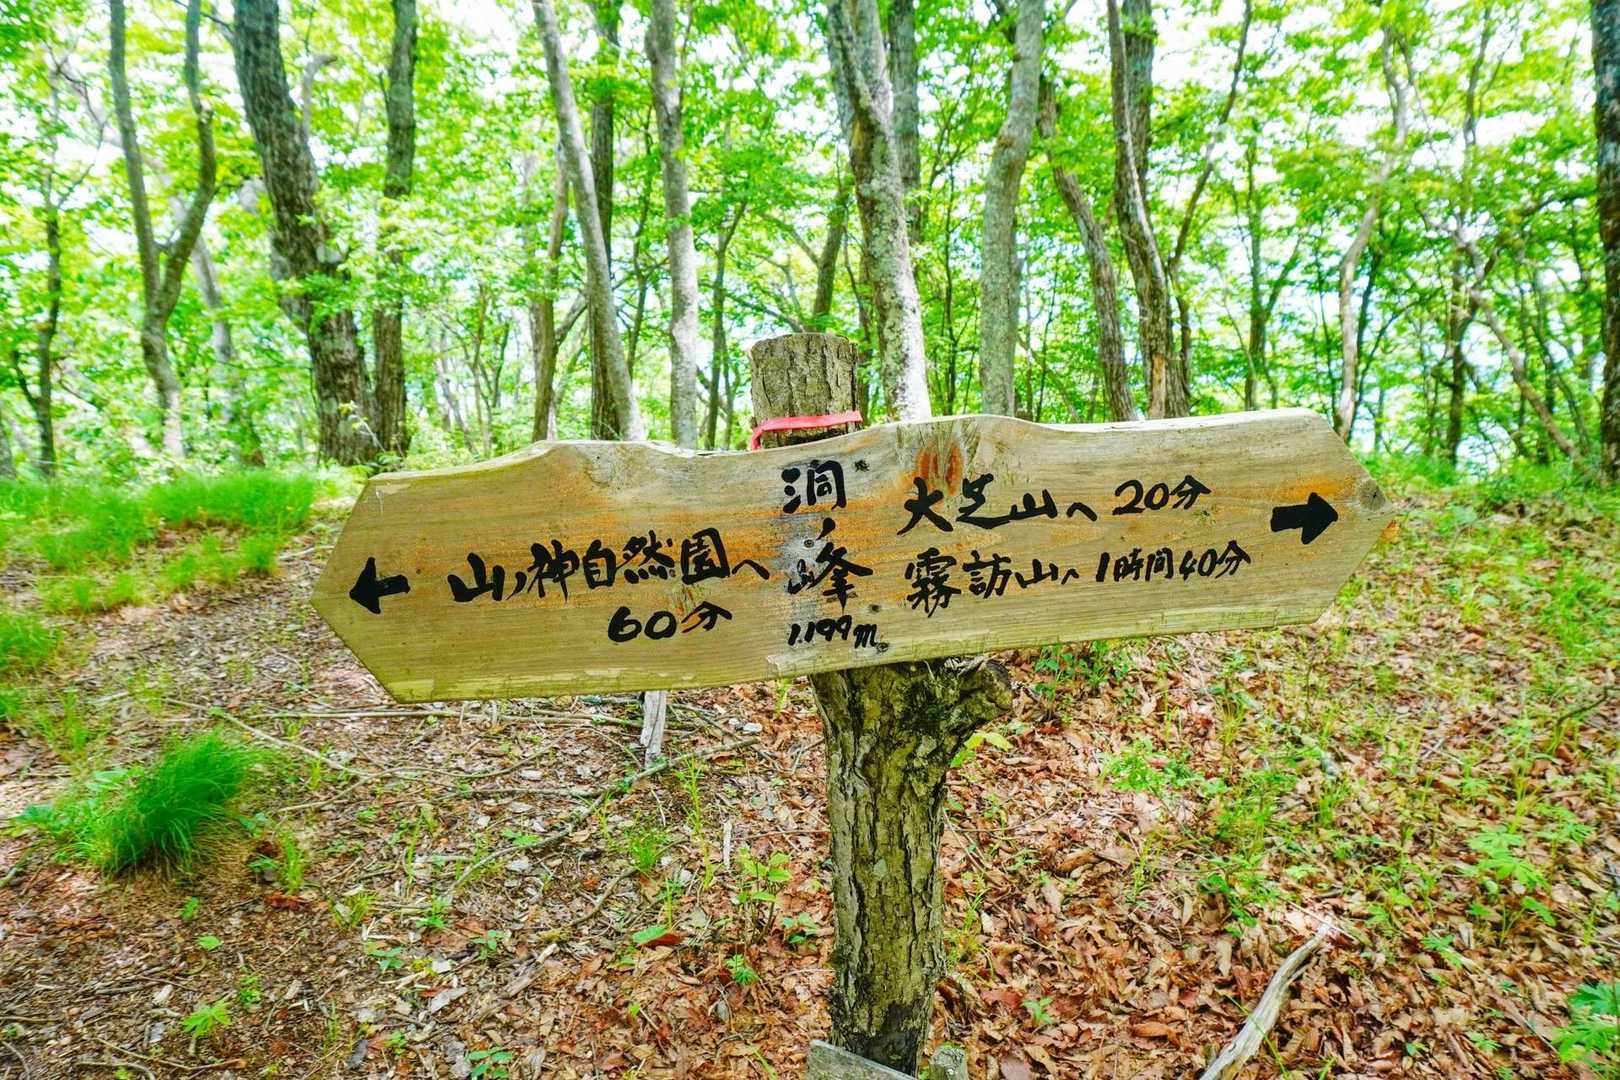 山ノ神自然園へ
60分
洞ノ峰
1.199m
大芝山へ 20分
霧訪山へ 1時間40分